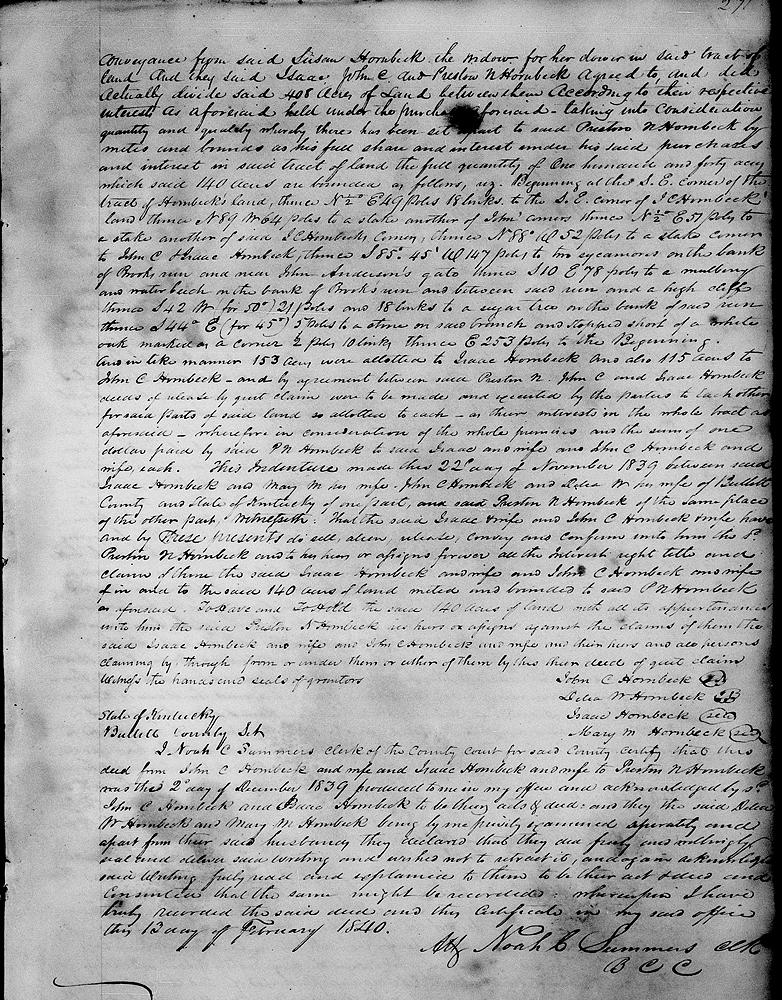 271
Conveyance from said Susan Hornbeck the widow for her dower in said tract of
land And they said Isaac, John C. and Preston N Hornbeck Agreed to, and did
Actually divide said 408 Acres of Land between them According to their respective
interests As aforesaid held under the purchase aforesaid - taking into Consideration
quantity and quality whereby there has been set apart to said Preston N Hornbeck by
metes and bounds as his full share and interest under his said purchases
and interest in said tract of land the full quantity of One hundred and forty acres
which said 140 acres are bounded as follows, viz. Beginning at the S. E. corner of the
tract of Hornbecks land, thence N ½° E 49 Poles 18 links to the S. E. corner of J C Hornbeck's
land thence N 89 W 64 poles to a stake another of John' corners thence N ½° E 57 poles to
a stake another of said J C Hornbecks Corners, thence N 88° W 52 poles to a stake corner
to John C & Isaac Hornbeck, thence S 55° 45' W 147 poles to two sycamores on the bank
of Brooks run and near John Anderson's gate thence S 10 E 78 poles to a mulberry
and water beech on the bank of Brooks run and between said run and a high cliff
thence S 42 W (for 50°) 21 poles and 18 links to a sugar tree on the bank of said run
thence S 44° E (for 45°) 5 Poles to a stone on said branch and stopped short of a white
oak marked as a corner 2 poles 10 links thence E 253 poles to the Beginning.
And in like manner 153 acres were allotted to Isaac Hornbeck and also 115 acres to
John C Hornbeck - and by agreement between said Preston N. John C and Isaac Hornbeck
deeds of release by quit claim were to be made and executed by the parties to each other
for said parts of said land so allotted to each - as their interests in the whole tract as
aforesaid - wherefore in consideration of the whole premises and the sum of one
dollar paid by said P N Hornbeck to said Isaac and wife and John C Hornbeck and
wife, each. This Indenture made this 22d day of November 1839 between said
Isaac Hornbeck and Mary M his wife. John C Hornbeck and Delea W his wife of Bullitt
County and State of Kentucky of one part, and said Preston N Hornbeck of the same place
of the other part, Witnesseth: That the said Isaac & wife and John C Hornbeck & wife have
and by These presents do sell, alien, release, convey and confirm unto him the sd
Preston N Hornbeck and to his heirs or assigns forever all the Interest right title and
claim of them the said Isaac Hornbeck and wife and John C Hornbeck and wife
of in and to the said 140 acres of land meted and bounded to said P N Hornbeck
as aforesaid. To Have and To Hold the said 140 acres of land with all its appurtenances
unto him the said Preston N Hornbeck his heirs or assigns against the claims of them the
said Isaac Hornbeck and wife and John C Hornbeck and wife and their heirs and all persons
claiming by, through from or under them or either of them by this their deed of quit claim
Witness the hands and seals of grantors John C Hornbeck seal
Delea W Hornbeck seal
State of Kentucky Isaac Hornbeck seal
Bullitt County Sct Mary M Hornbeck seal
I Noah C Summers clerk of the County Court for said County certify that this
deed from John C Hornbeck and wife and Isaac Hornbeck and wife to Preston N Hornbeck
was this 2d day of December 1839 produced to me in my office and acknowledged by sd
John C Hornbeck and Isaac Hornbeck to be their acts & deed: and they the said Delea
W Hornbeck and Mary M Hornbeck being by me privily examined separately and
apart from their said husbands they declared that they did freely and willingly
seal and deliver said writing and wishes not to retract it, and again acknowledged
said writing fully read and explained to them to be their act & deed and
Consented that the same might be recorded: whereupon I have
truly recorded the said deed and this Certificate in my said office
this 13 day of February 1840.
Att Noah C Summers clk
B C C